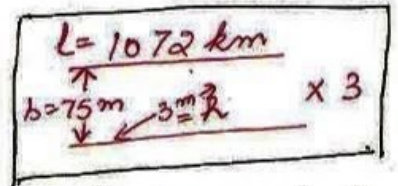 l = 1072 km
b = 75 m 3 m³ × 3